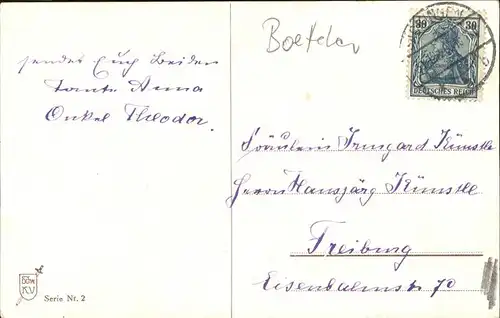 Boetdcer
30 30
DEUTSCHES REICH
sendet Euch Beiden
Tante Anna
Onkel Theodor.
Fräulein Irmgard Künstle
Herrn Hansjörg Künstle
Freiburg
Eisenbahnstr. 70
K.V
Serie Nr. 2